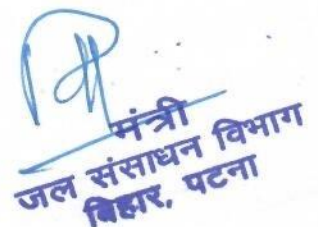 मंत्री
जल संसाधन विभाग
बिहार, पटना